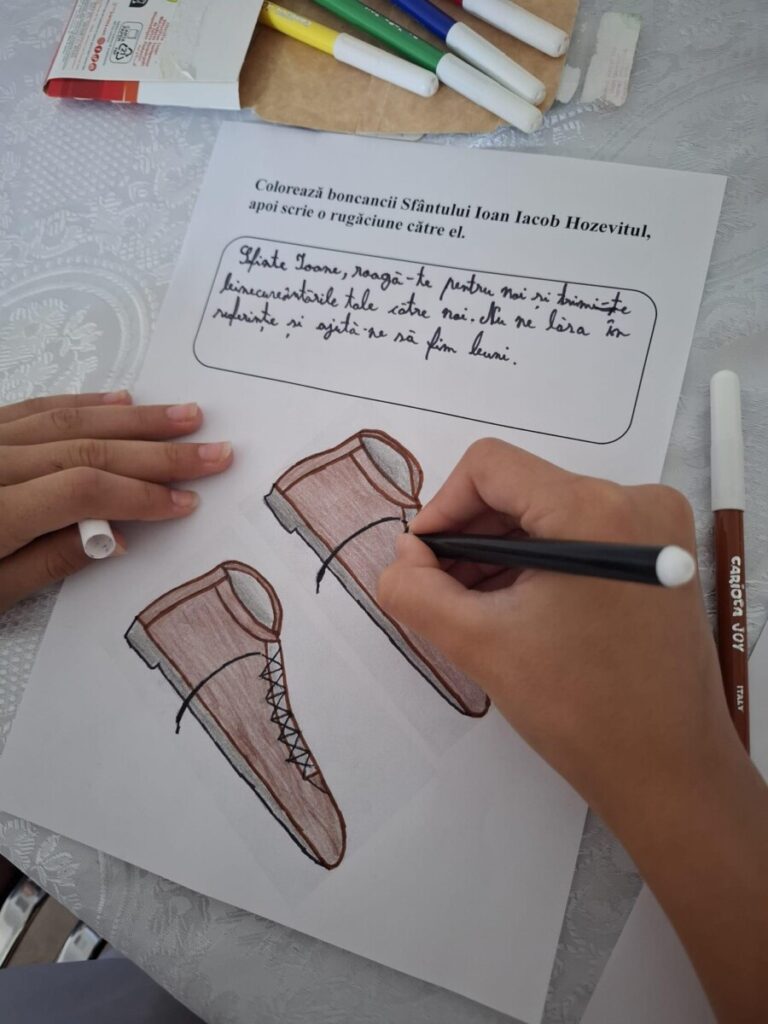 Colorează boncancii Sfântului Ioan Iacob Hozevitul,
apoi scrie o rugăciune către el.
Sfinte Ioane, roagă-te pentru noi și trimi-te
beinecureântările tale către noi. Nu ne lăsa în
suferințe și ajută-ne să fim buni.
CARIOCA JOY
ITALY